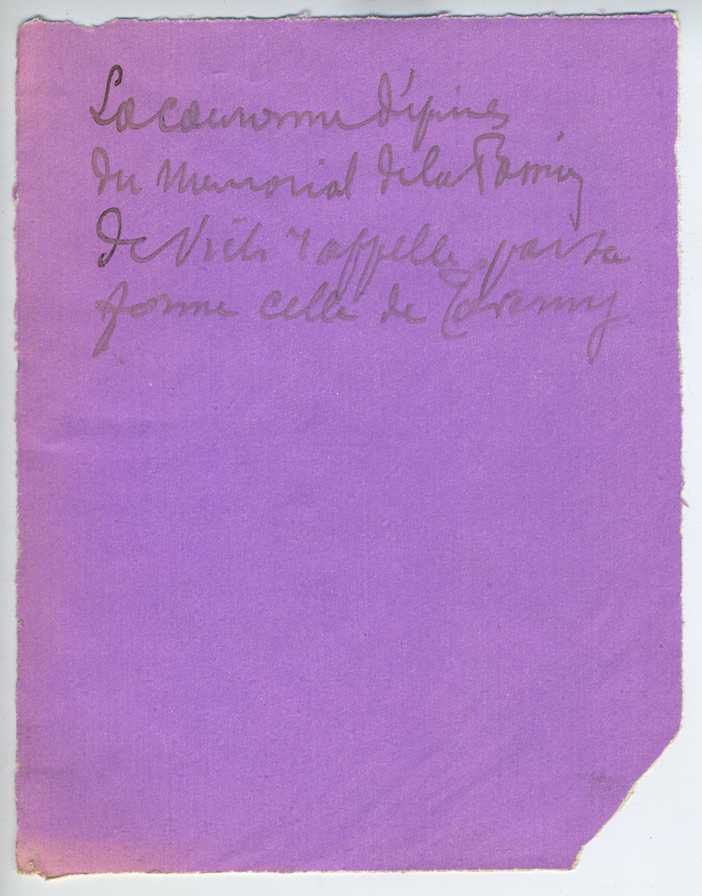 La couronne d'épines
du Memorial de la Passion
de Vich rappelle par sa
forme celle de Taverny